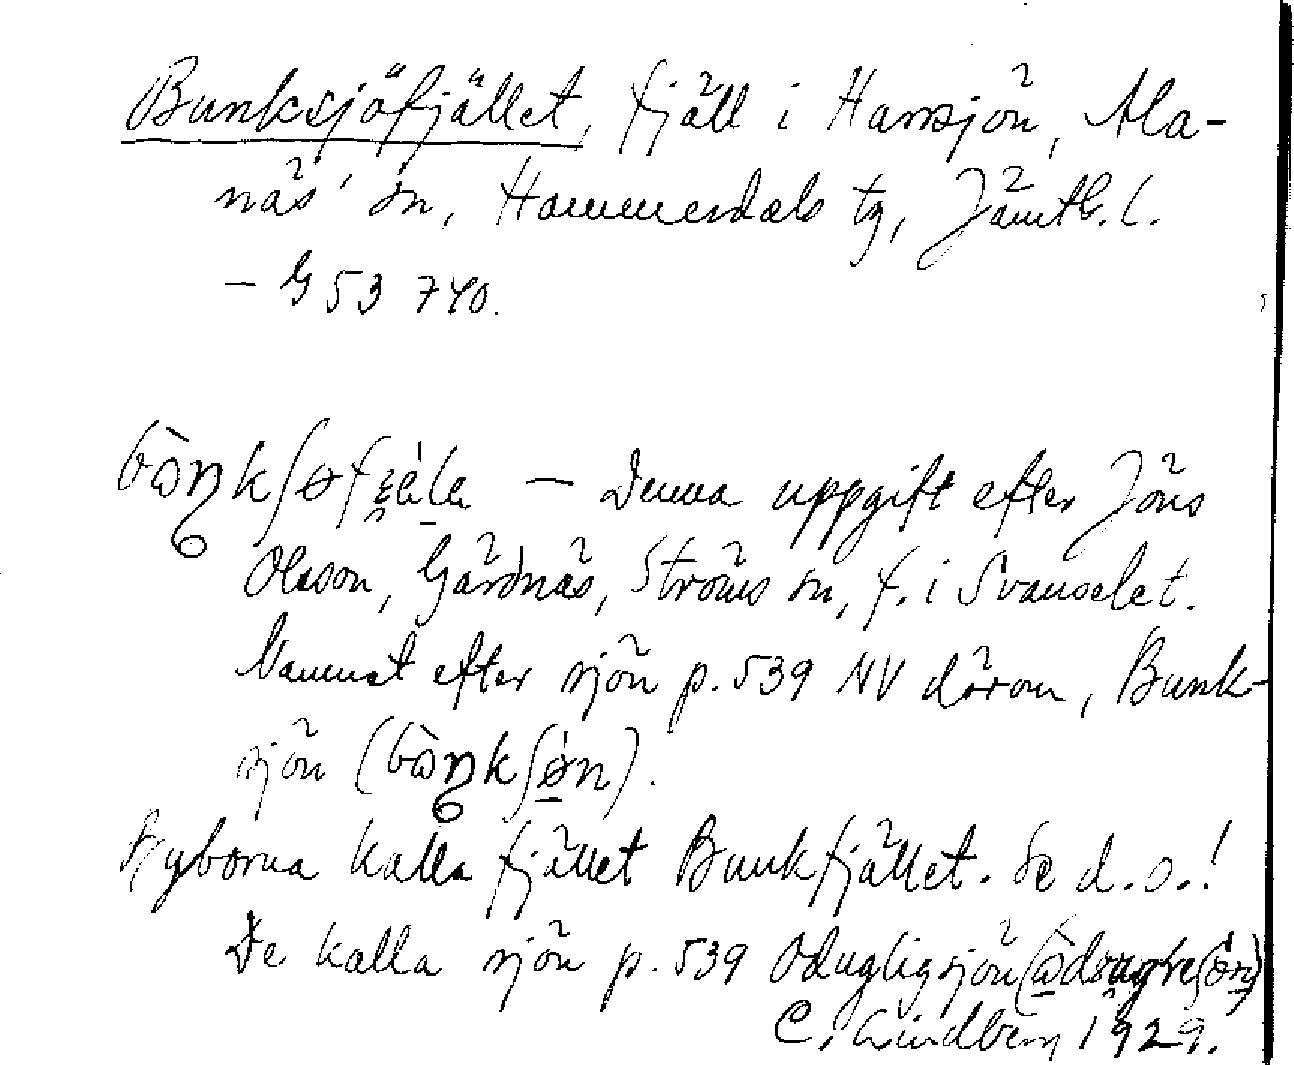 Bunksjöfjället, fjäll i Harrsjön, Ala-
näs' sn, Hammerdals tg, Jämtl. l.
– G 53 740.
– Denna uppgift efter Jöns
Olsson, Gårdnäs, Ströms sn, f. i Svaneselet.
Namnet efter sjön p. 539 NV därom, Bunk-
sjön
Nyborna kalla fjället Bunkfjället. Se d. o.!
De kalla sjön p. 539 Odugligsjön
C. Lindberg 1929.